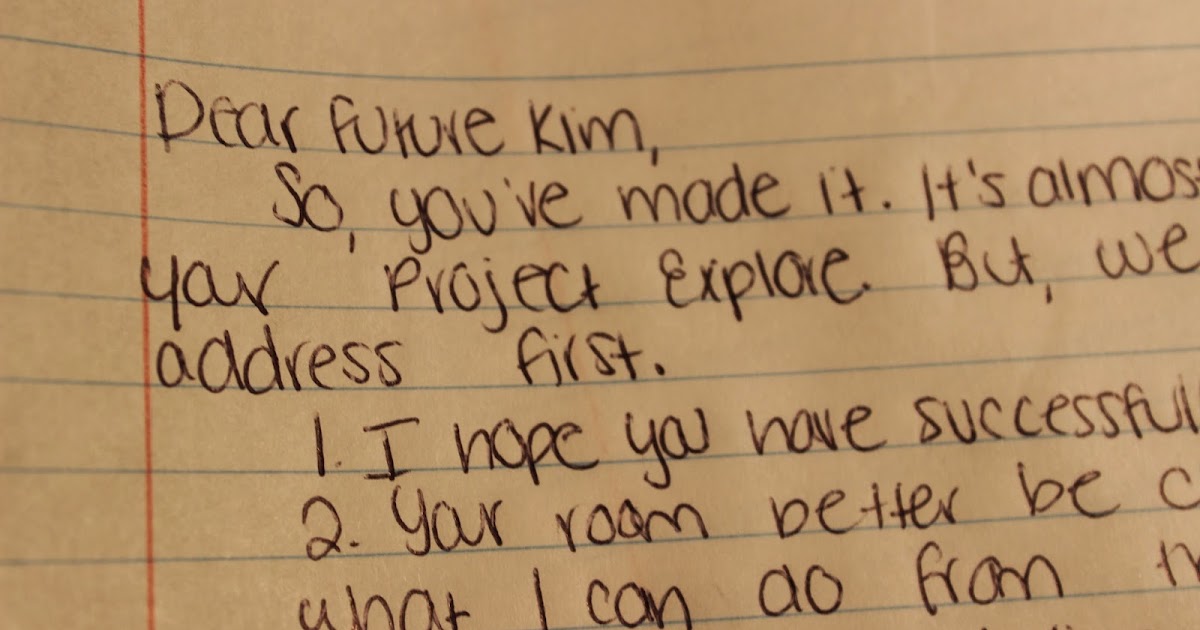 Dear Future Kim,
So, you've made it. It's almos
your Project Explore. But, we
address first.
1. I hope you have successful
2. Your room better be c
what I can do from